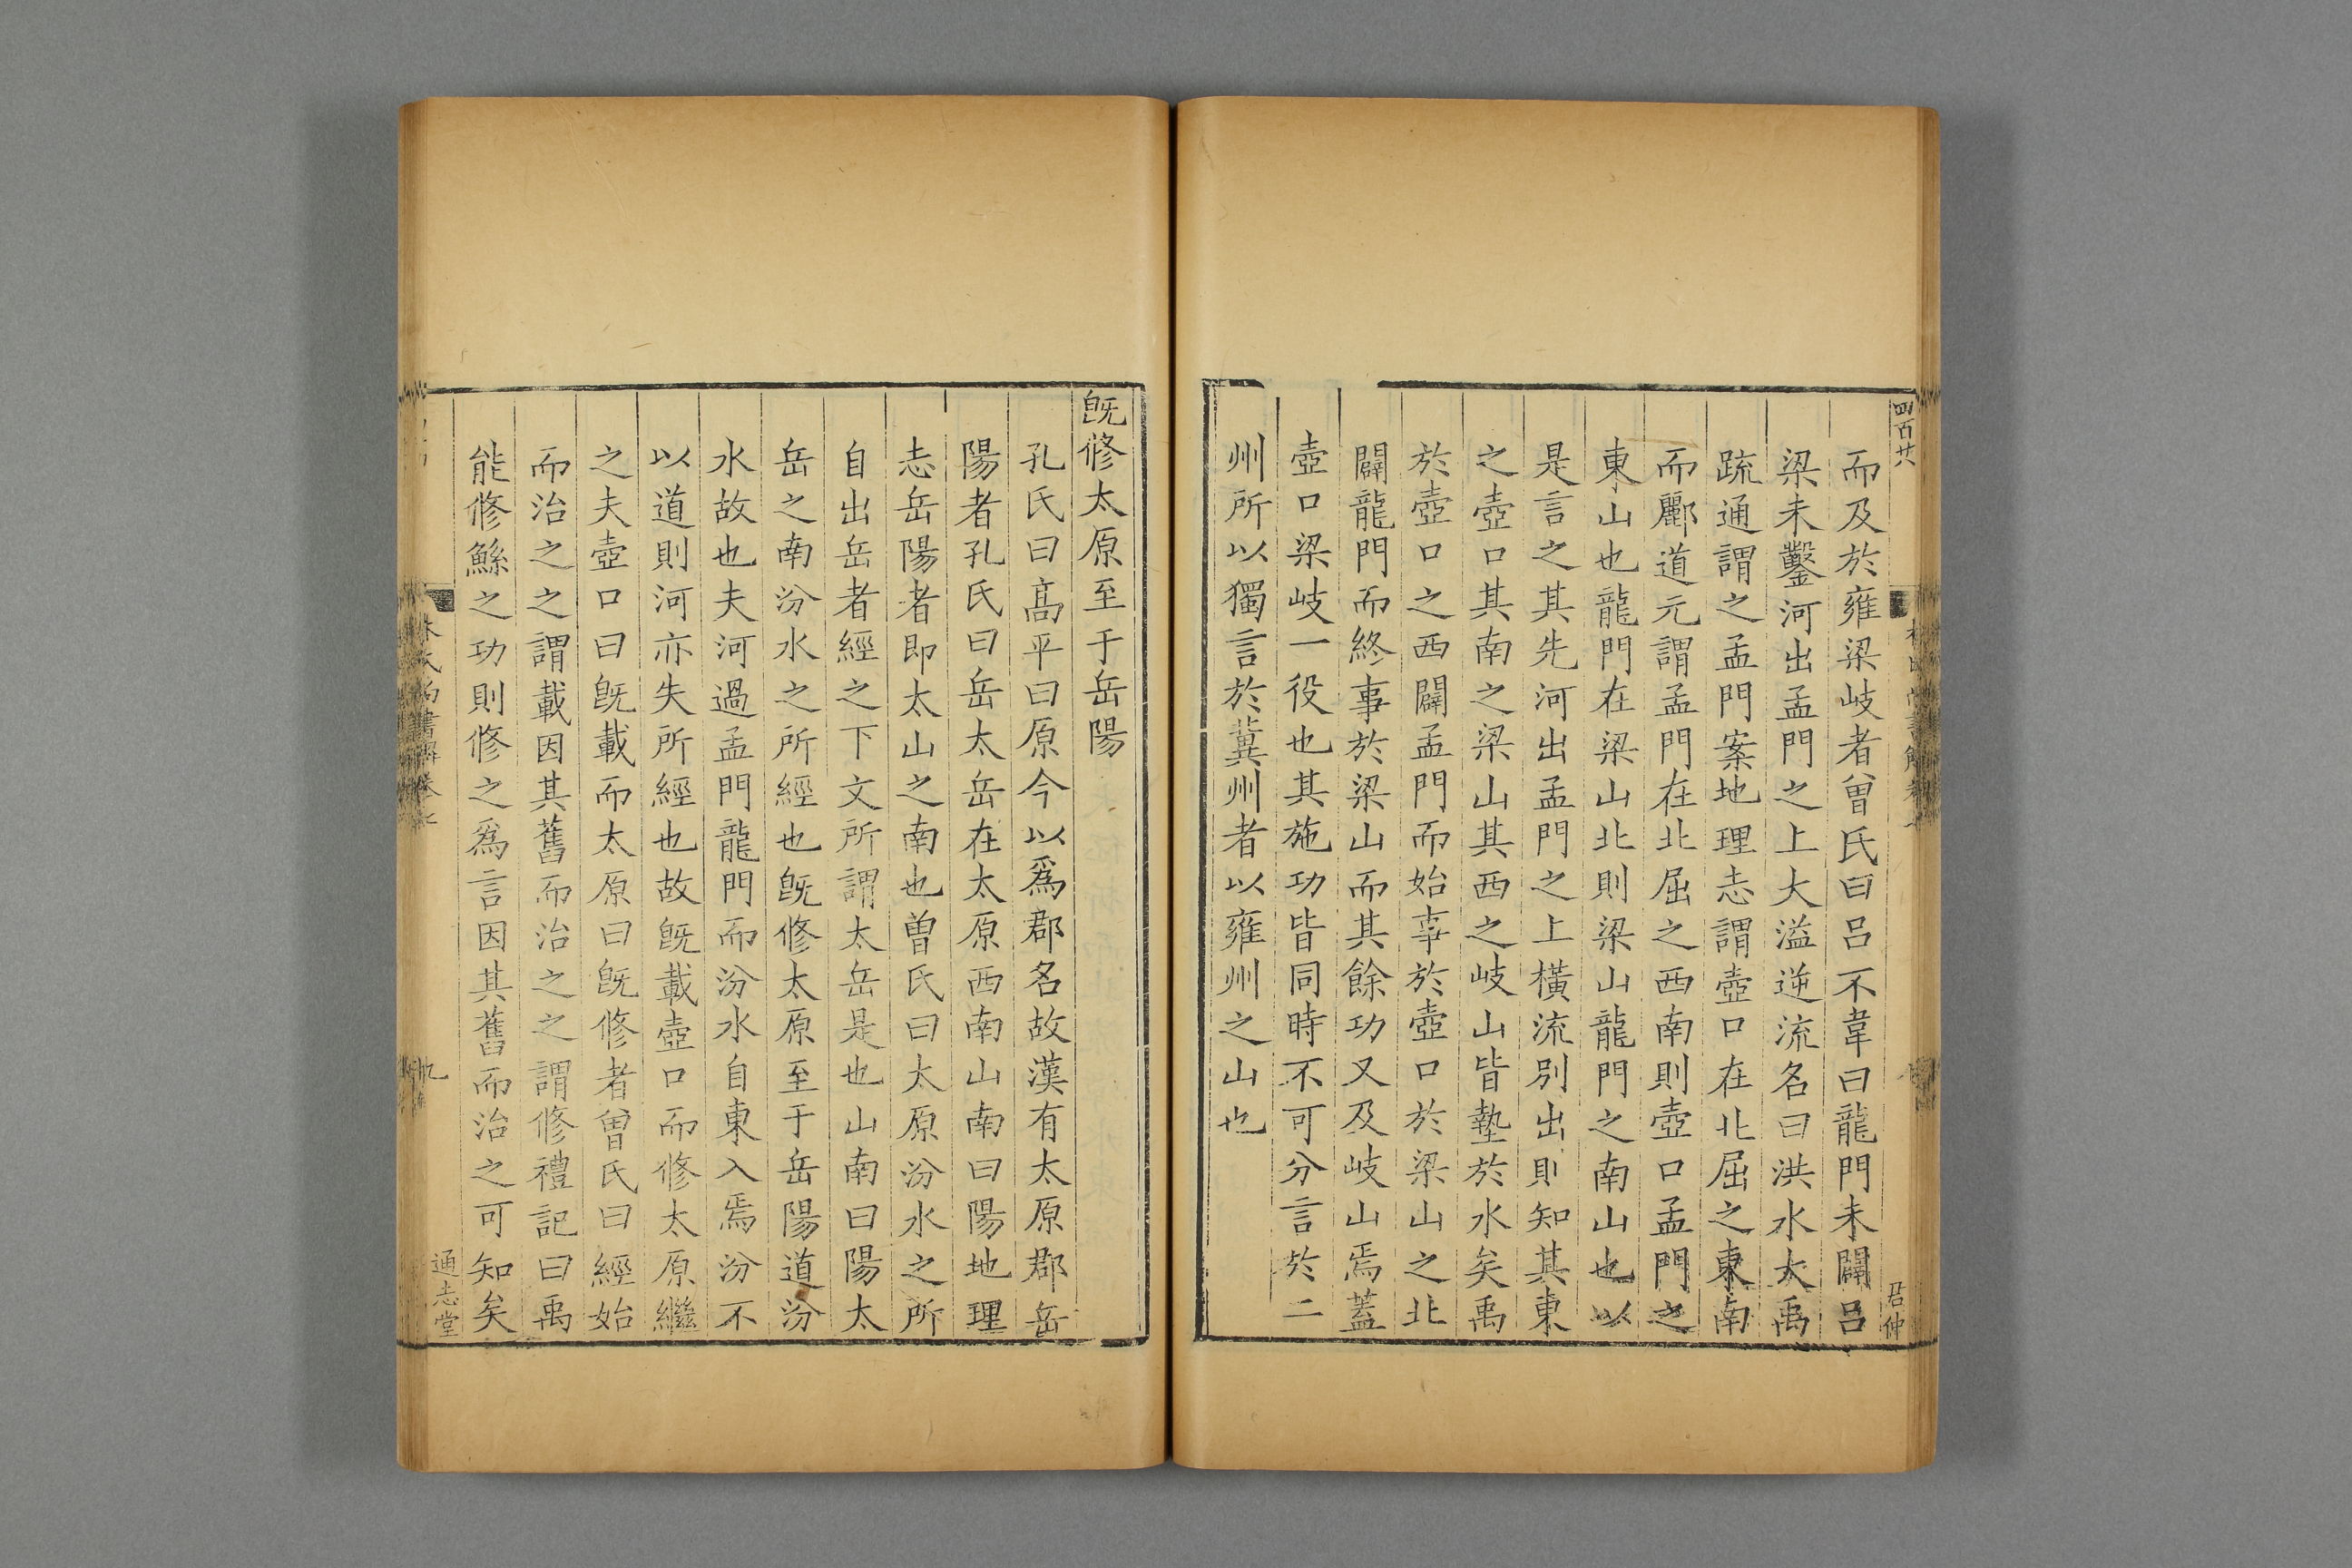 四百廿
而及於雍梁岐者曾氏曰呂不韋曰龍門未闢呂
梁未鑿河出孟門之上大溢逆流名曰洪水大禹
疏通謂之孟門案地理志謂壺口在北屈之東南
而酈道元謂孟門在北屈之西南則壺口孟門之
東山也龍門在梁山北則梁山龍門之南山也以
是言之其先河出孟門之上橫流別出則知其東
之壺口其南之梁山其西之岐山皆墊於水矣禹
於壺口之西闢孟門而始事於壺口於梁山之北
闢龍門而終事於梁山而其餘功又及岐山焉蓋
壺口梁岐一役也其施功皆同時不可分言於二
州所以獨言於冀州者以雍州之山也
君仲
既修太原至于岳陽
孔氏曰高平曰原今以爲郡名故漢有太原郡岳
陽者孔氏曰岳太岳在太原西南山南曰陽地理
志岳陽者即太山之南也曾氏曰太原汾水之所
自出岳者經之下文所謂太岳是也山南曰陽太
岳之南汾水之所經也既修太原至于岳陽道汾
水故也夫河過孟門龍門而汾水自東入焉汾不
以道則河亦失所經也故既載壺口而修太原繼
之夫壺口曰既載而太原曰既修者曾氏曰經始
而治之之謂載因其舊而治之之謂修禮記曰禹
能修鯀之功則修之爲言因其舊而治之可知矣
林氏尚書解卷七
九
通志堂